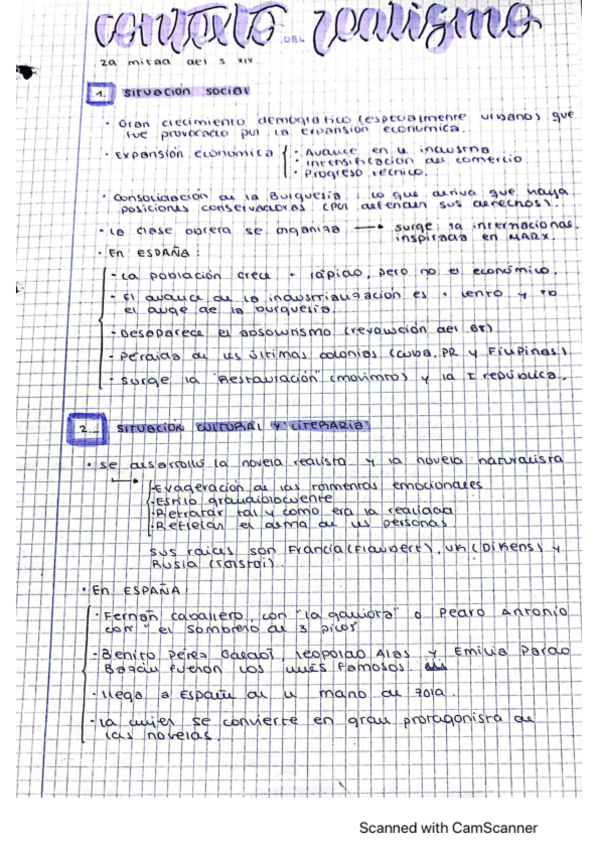 contexto DEL realismo
2a mitad del s XIX.
1. SITUACIÓN SOCIAL
· Gran crecimiento demográfico (especialmente urbano) que
fue provocado por la expansión económica.
· Expansión económica { · Avance en la industria
· Intensificación del comercio
· Progreso técnico.
· Consolidación de la Burguesía, lo que deriva que haya
posiciones conservadoras (para defender sus derechos).
· La clase obrera se organiza → surge la internacional
inspirada en MARX.
· En ESPAÑA:
- La población crece + rápido, pero no el económico.
- El avance de la industrialización es + lento y tb
el auge de la burguesía.
- Desaparece el absolutismo (revolución del 68)
- Pérdida de las últimas colonias (Cuba, PR y Filipinas)
- Surge la "Restauración" (movimto) y la I república.
2._ SITUACIÓN CULTURAL Y LITERARIA
· Se desarrolló la novela realista y la novela naturalista
- Exageración de las emocionales
- Estilo grandilocuente
- Retratar tal y como era la realidad
- Reflejan el de las personas
sus raíces son Francia (Flaubert), UK (Dikens) y
Rusia (Tolstoi)
· En ESPAÑA:
- Fernán caballero, con "la gaviota" o Pedro Antonio
con "el sombrero de 3 picos"
- Benito Pérez Galdós, Leopoldo Alas y Emilia Pardo
Bazán fueron los más famosos.
- llega a España de la mano de Zola.
- La mujer se convierte en gran protagonista de
las novelas.
Scanned with CamScanner